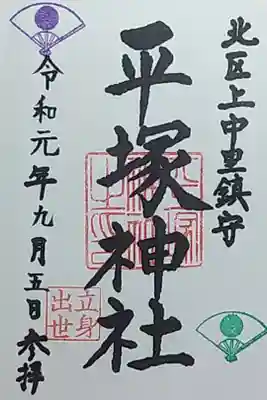 北区上中里鎮守
平塚神社
令和元年九月五日参拝
立身
出世